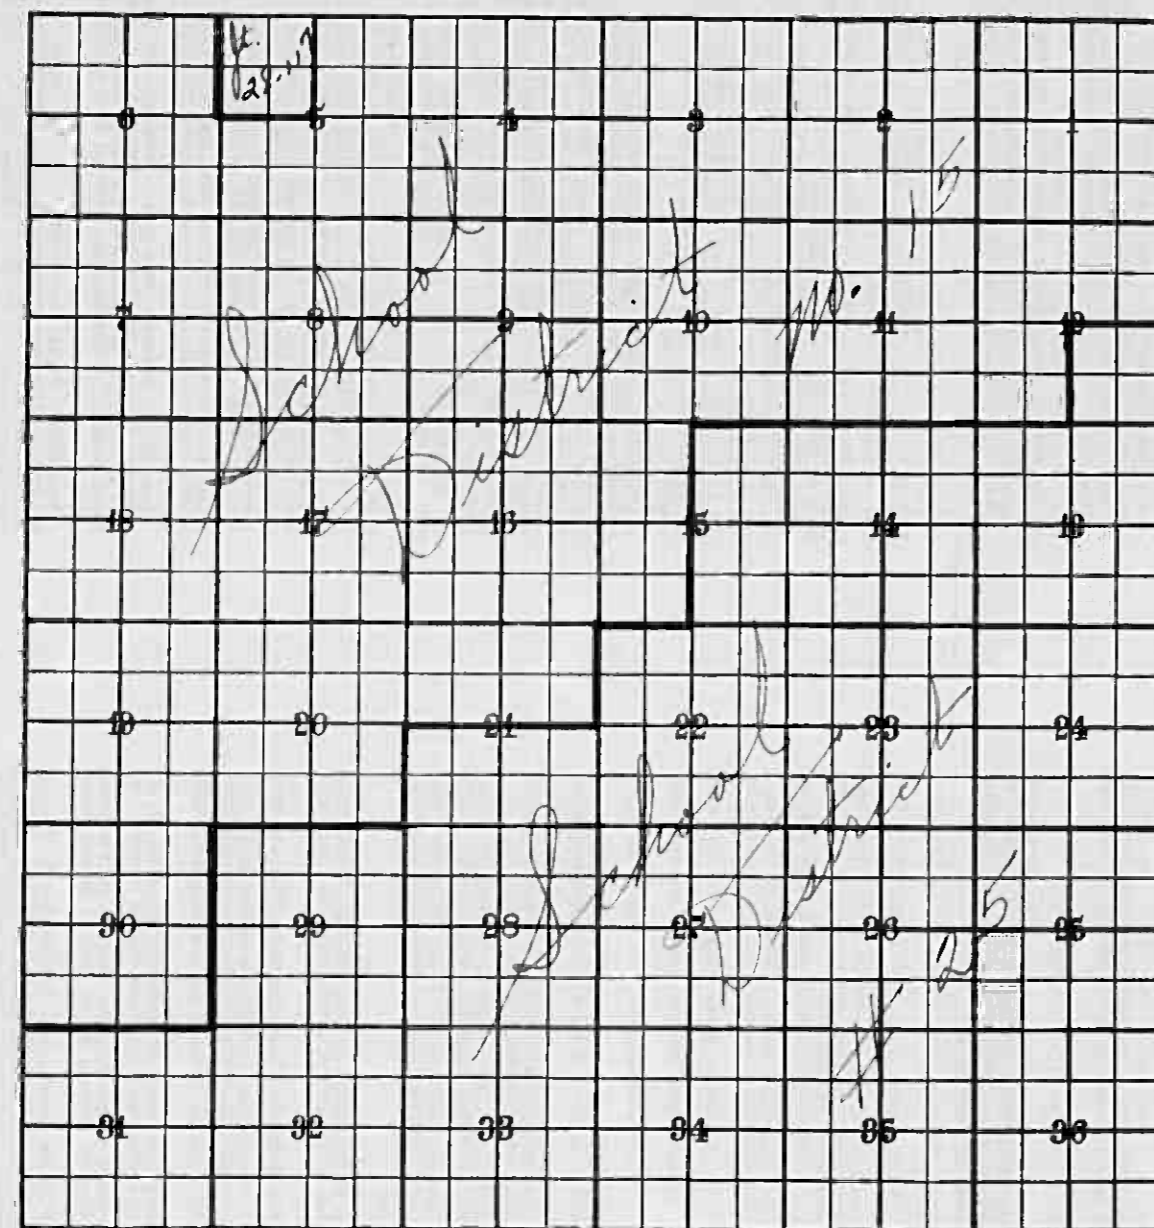 Jt.
28.
6 5 4 3 2 1
School
District No. 15
7 8 9 10 11 12
18 17 16 15 14 13
19 20 21 22 23 24
School
District
# 25
30 29 28 27 26 25
31 32 33 34 35 36